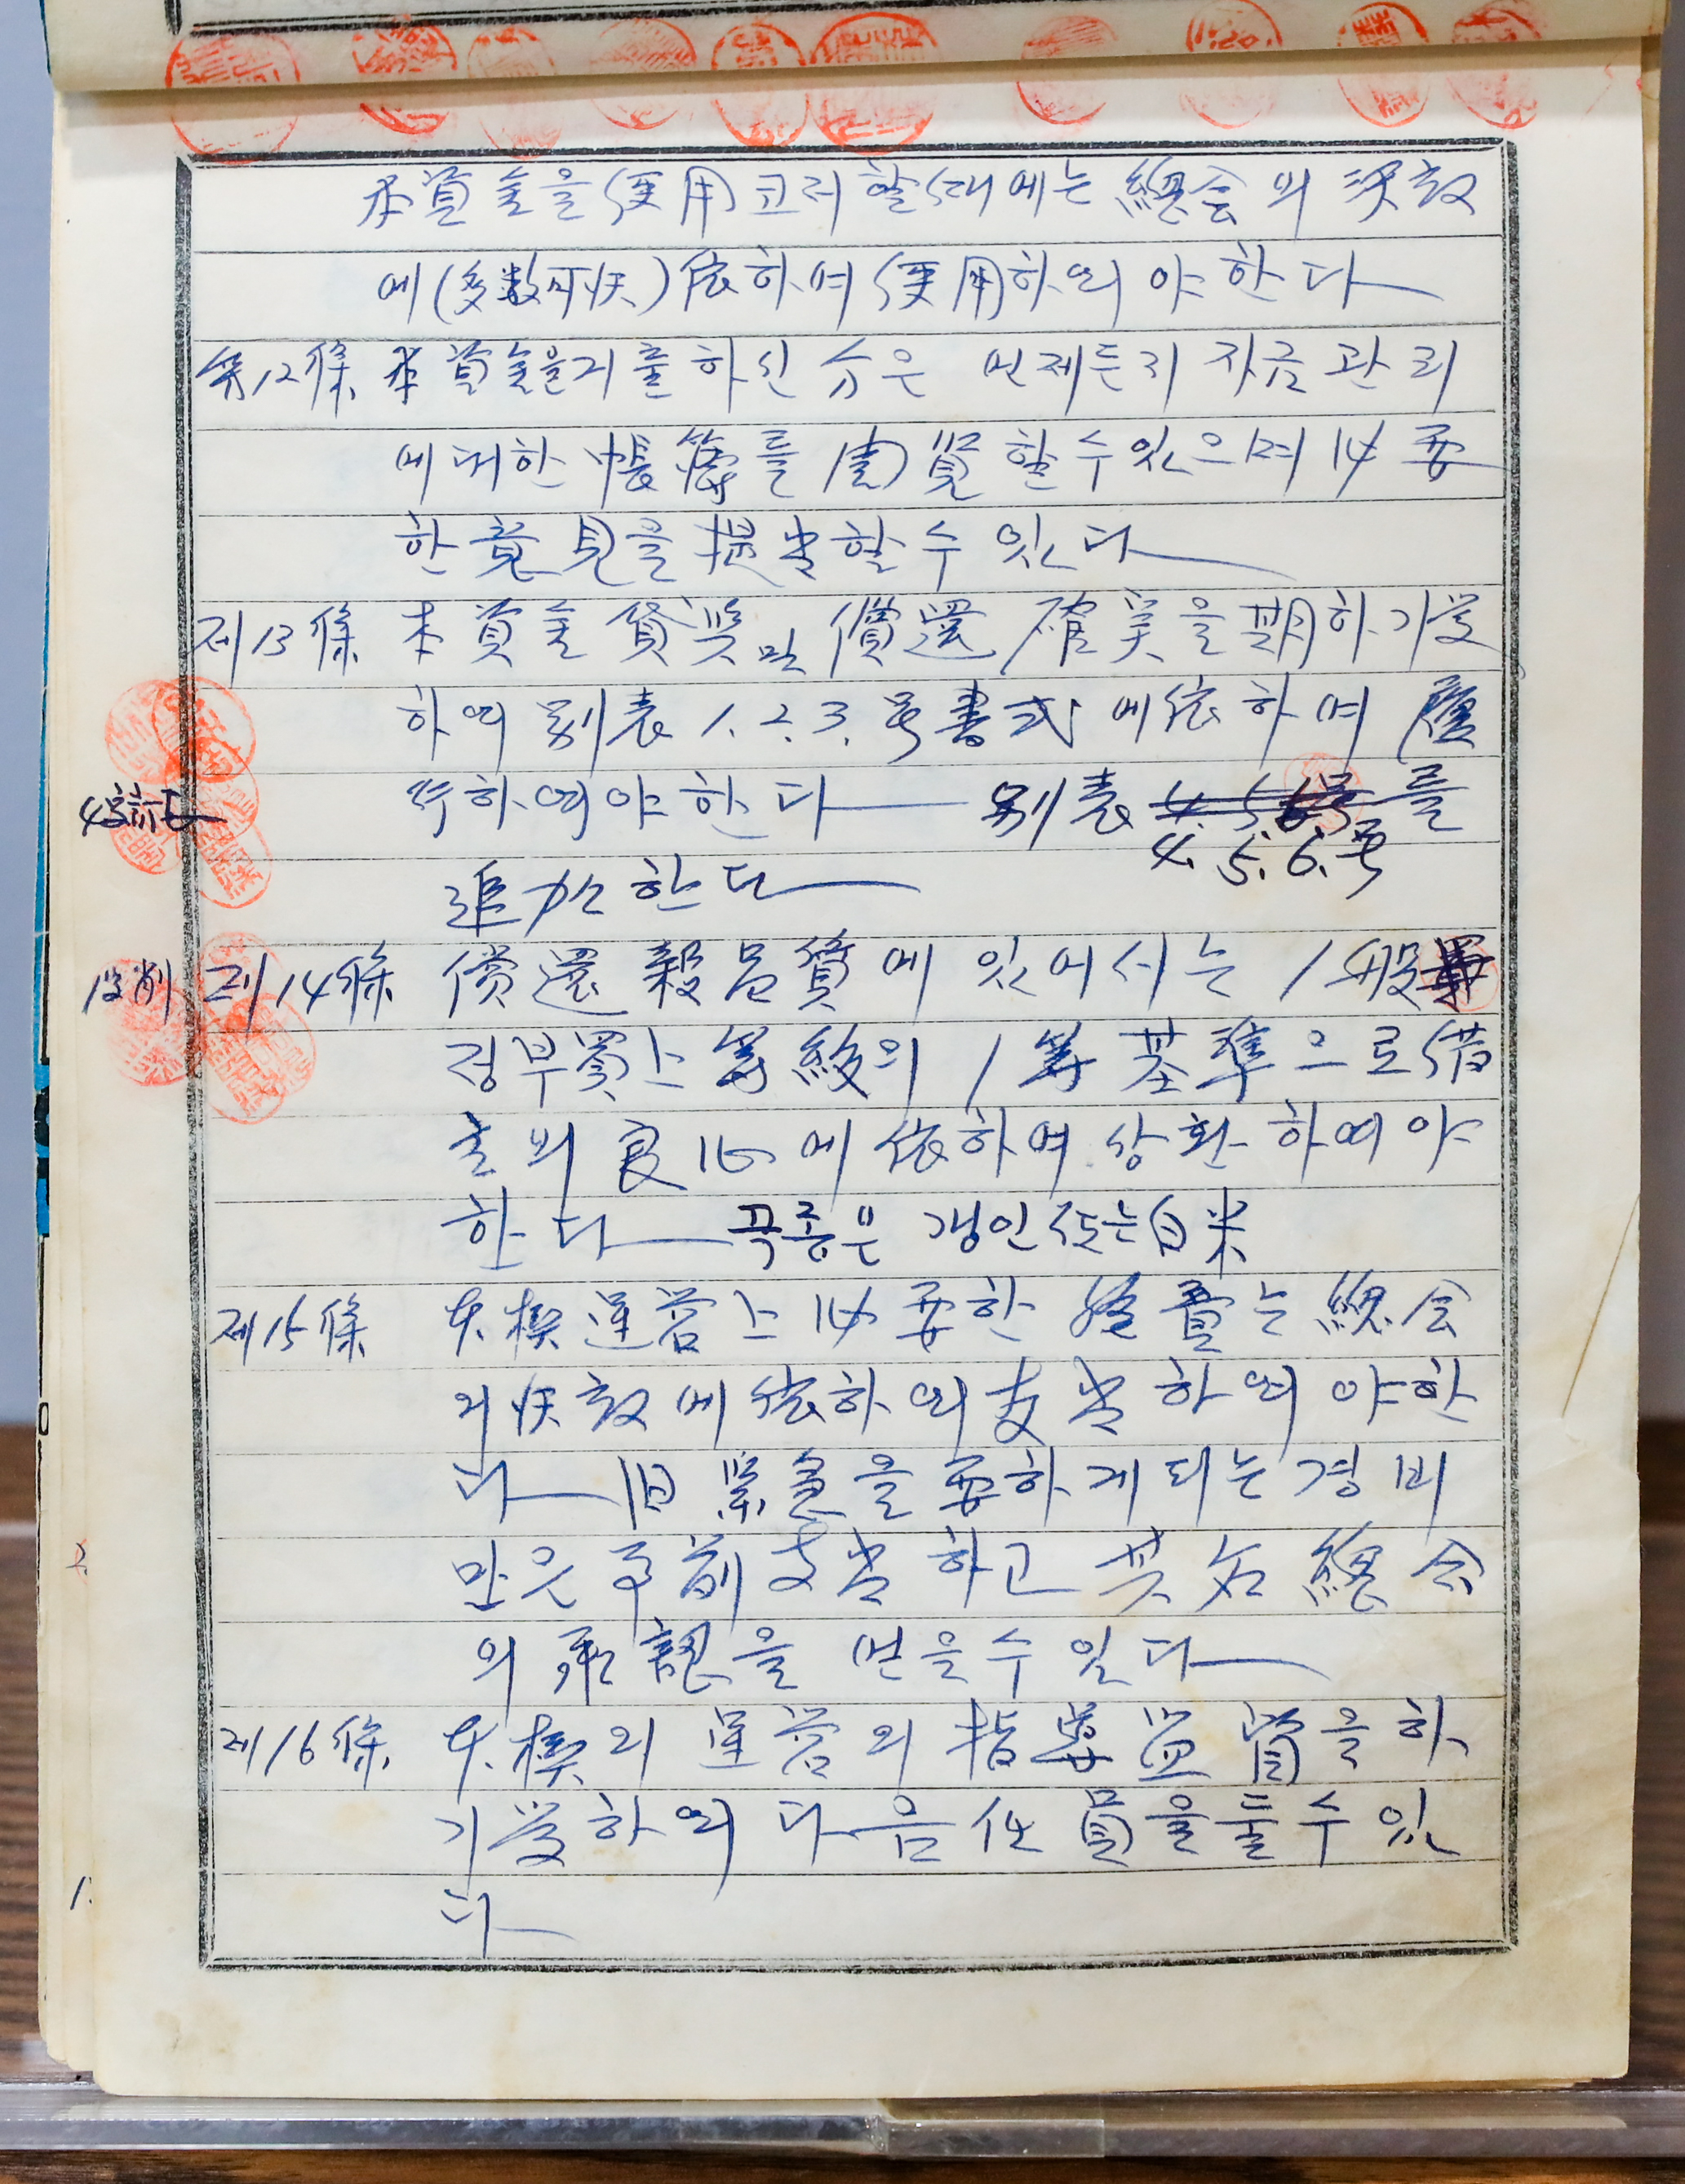 本資金을 使用코저할때에는 總会의 決議
에(多数可决)依하여 使用하여야 한다
第12條 本資金을 거출하신 分은 언제든지 자금관리
에 대한 帳簿를 閲覧할수있으며 必要
한 意見을 提出할수 있다
제13條 本資金 貸與 및 償還 確実을 期하기 爲
하여 別表 1.2.3.号書式에 依하여 履
行하여야 한다 別表 4.5.6号를
4.5.6.号
4字訂正
追加한다
1字削 제14條 償還 穀品質에 있어서는 1般
정부買上等級의 1等 基準으로 借
主의 良心에 依하여 상환하여야
한다 곡종은 갱인 또는 白米
제15條 本稧運营上 必要한 経費는 總会
의 决議에 依하여 支出하여야한
다 但 緊急을 要하게 되는 경비
만은 事前支出하고 其后 總会
의 承認을 얻을수 있다
제16條 本稧의 運营의 指導監督을 하
기 爲하여 다음 任員을 둘수 있
다